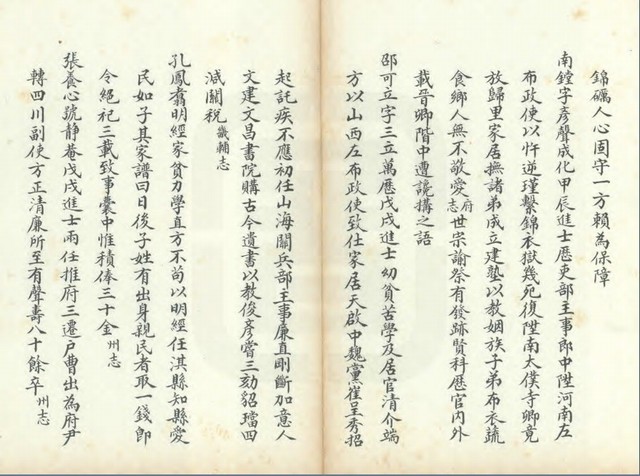 錦礪人心固守一方賴為保障
南鏜字彥聲成化甲辰進士歷吏部主事郎中陞河南左
布政使以忤逆瑾繫錦衣獄幾死復陞南太僕寺卿竟
放歸里家居撫諸弟成立建塾以教姻族子弟布衣蔬
食鄉人無不敬愛府志世宗諭祭有發跡賢科歷官內外
載晉卿階中遭讒搆之語
邵可立字三立萬歷戊戌進士幼貧苦學及居官清介端
方以山西左布政使致仕家居天啟中魏黨崔呈秀招
起託疾不應初任山海關兵部主事廉直剛斷加意人
文建文昌書院購古今遺書以教俊彥嘗三劾貂璫四
減關稅畿輔志
孔鳳翥明經家貧力學直方不苟以明經任淇縣知縣愛
民如子其家譜曰日後子姓有出身親民者取一錢即
令絕祀三載致事囊中惟積俸三十金州志
張養心號靜菴戊戌進士兩任推府三遷戶曹出為府尹
轉四川副使方正清廉所至有聲壽八十餘卒州志